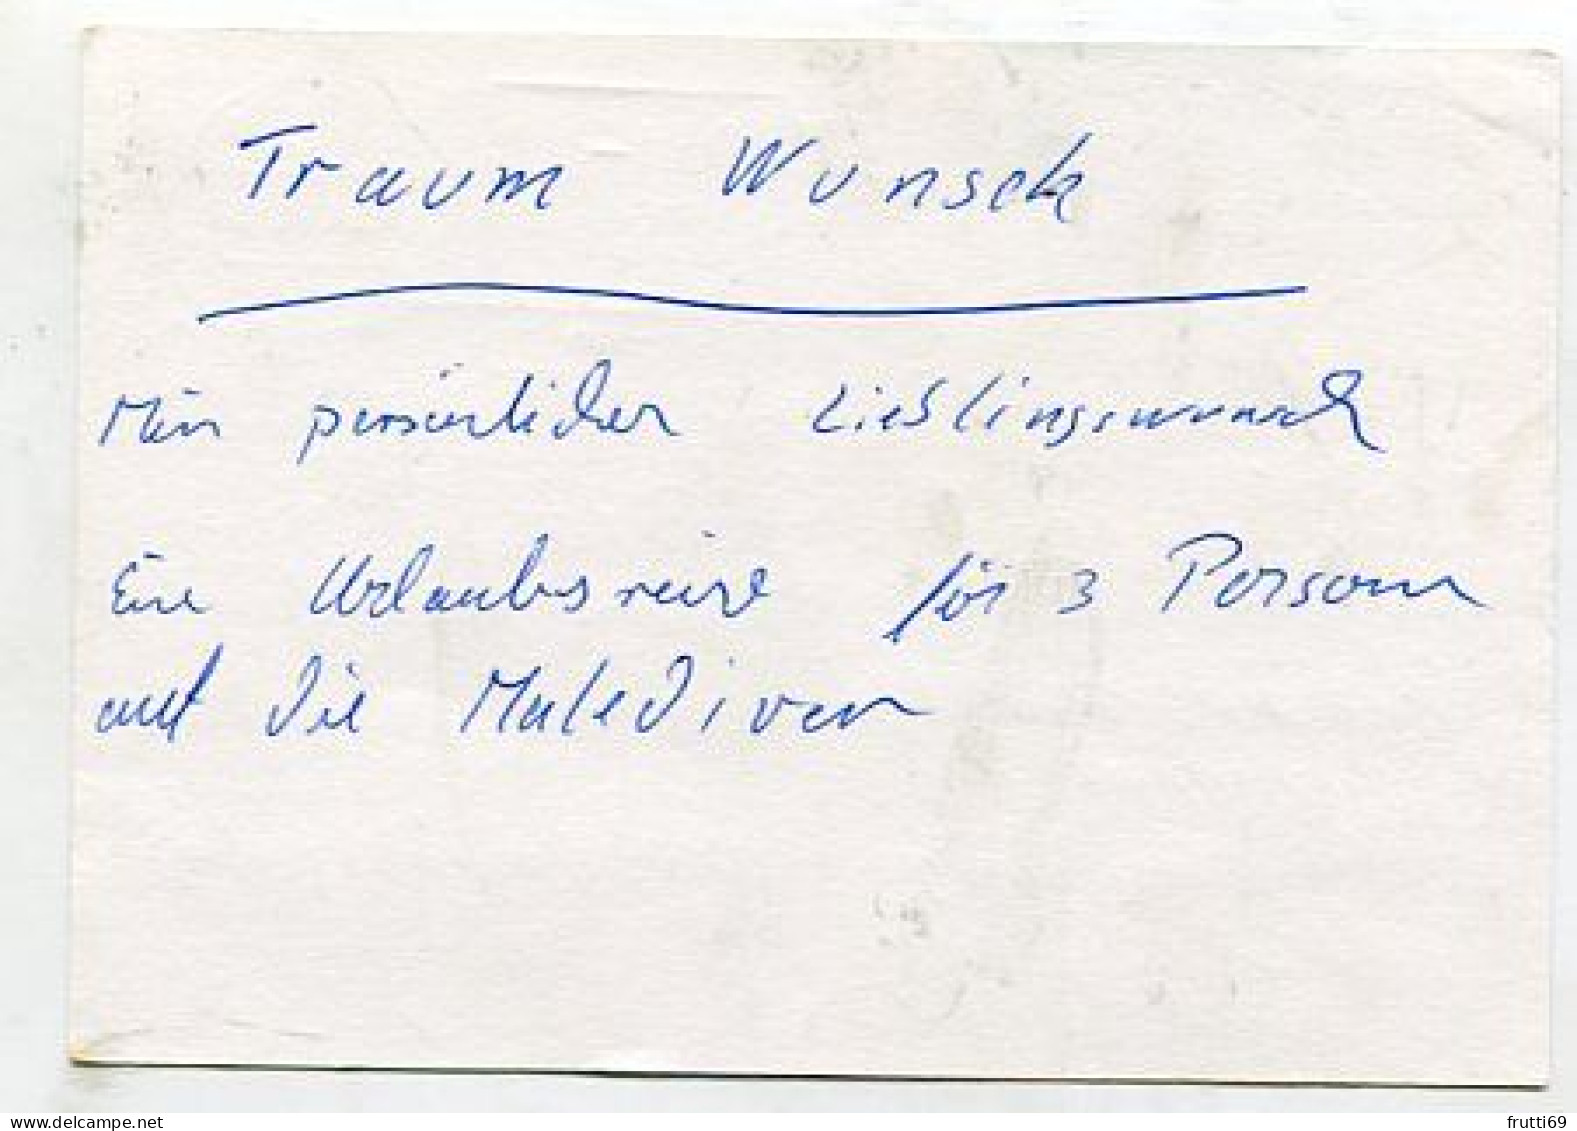 Traum Wunsch
Mein persönlicher Lieblingswunsch
Eine Urlaubsreise für 3 Personen
auf die Malediven
www.delcampe.net
frutti69